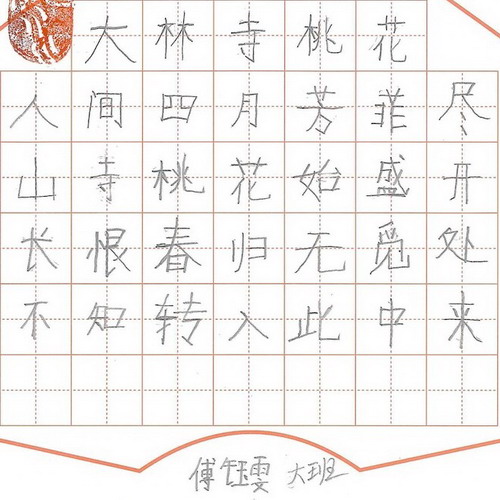 大林寺桃花
人间四月芳菲尽
山寺桃花始盛开
长恨春归无觅处
不知转入此中来
傅钰雯 大班